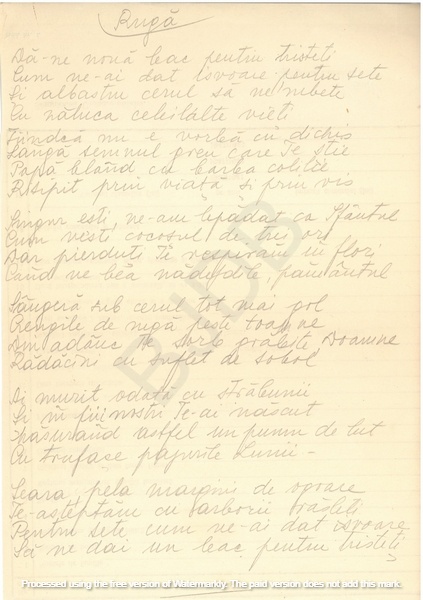 Rugă
Dă-ne nouă leac pentru tristeți
Cum ne-ai dat isvoare pentru sete
Și albastru cerul să ne mbete
Cu năluca celeilalte vieți
Fiindcă nu e vorbă cu dichis
Lângă semnul greu care Te știe
Papă blând cu barba colilie
Risipit prin viață și prin vis
Singur ești, ne-am lepădat ca Sfântul
Cum vesti cocoșul de trei ori
Dar pierduți Te respirăm în flori
Când ne bea nădejdile, pământul
Sângeră sub cerul tot mai gol
Rengile de rugă peste toamne
Din adânc Te sorb grăbite Doamne
Rădăcini cu suflet de sobol
Ai murit odată cu străbunii
Și în fiii noștri Te-ai născut
astfel un pumn de lut
Cu trufașe pajurile Lunii -
Seara, pela margini de ogoare
Te-așteptăm cu arborii
Pentru sete cum ne-ai dat isvoare
Să ne dai un leac pentru tristeți
BJBB
Processed using the free version of Watermarkly. The paid version does not add this mark.